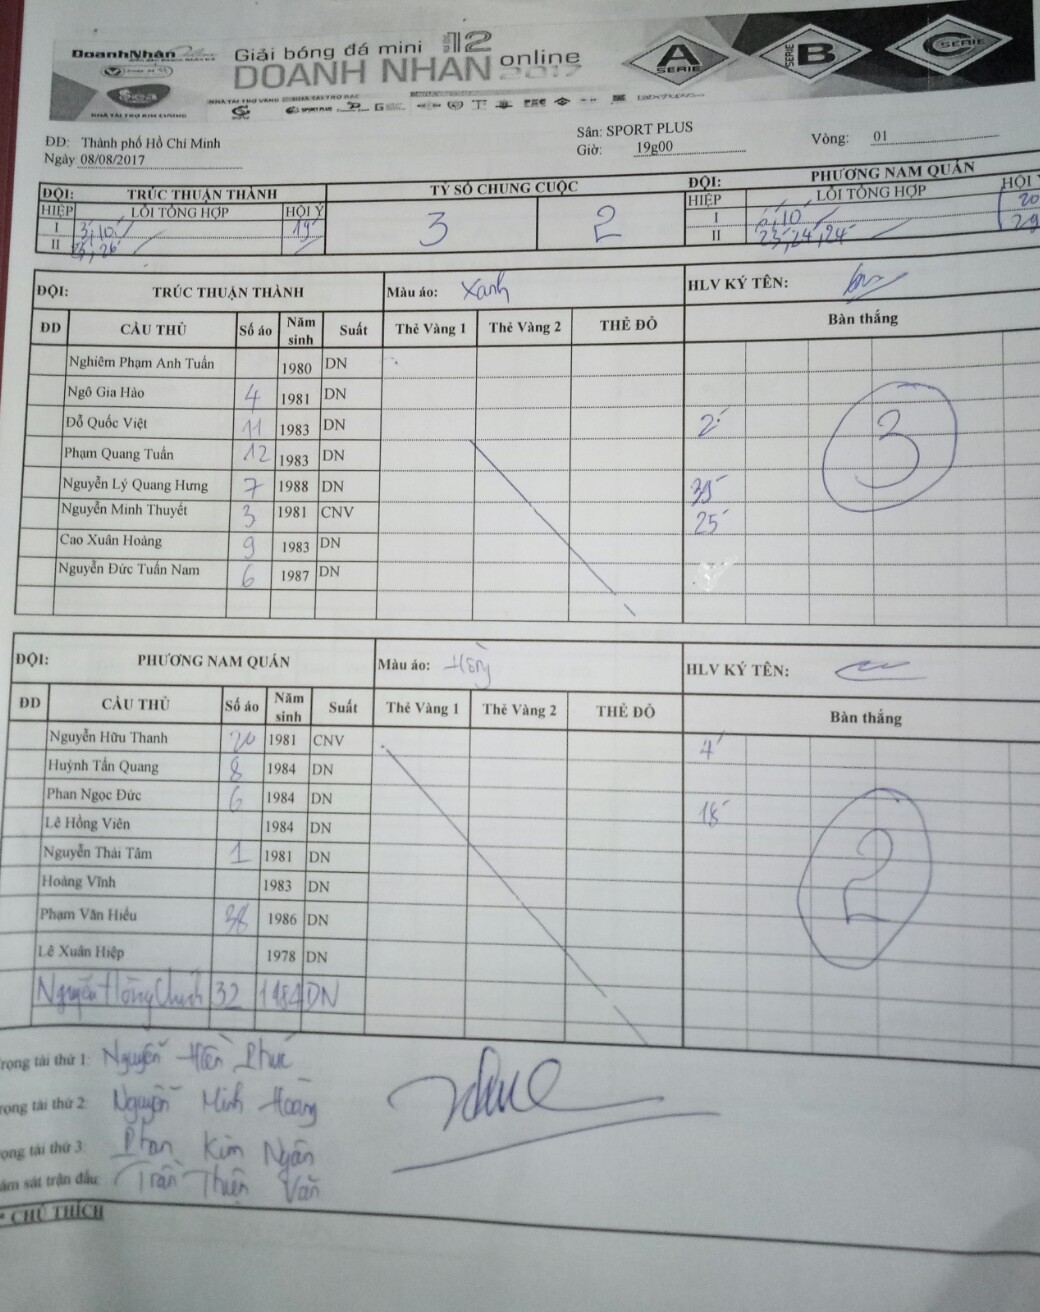 DoanhNhân
Giải bóng đá mini 12 online
DOANH NHÂN 2017
A SERIE
SERIE B
C SERIE
NHÀ TÀI TRỢ KIM CƯƠNG
NHÀ TÀI TRỢ VÀNG
NHÀ TÀI TRỢ BẠC
SPORT PLUS
ĐĐ: Thành phố Hồ Chí Minh
Sân: SPORT PLUS
Vòng: 01
Ngày 08/08/2017
Giờ: 19g00
ĐỘI: TRÚC THUẬN THÀNH TỶ SỐ CHUNG CUỘC ĐỘI: PHƯƠNG NAM QUÁN
HIỆP LỖI TỔNG HỢP HỘI Ý 3 2 HIỆP LỖI TỔNG HỢP HỘI Ý
I 3, 10 19 I 10 20
II 26 II 23, 24, 24 29
ĐỘI: TRÚC THUẬN THÀNH Màu áo: Xanh HLV KÝ TÊN:
ĐD CẦU THỦ Số áo Năm sinh Suất Thẻ Vàng 1 Thẻ Vàng 2 THẺ ĐỎ Bàn thắng
Nghiêm Phạm Anh Tuấn 1980 DN
Ngô Gia Hào 4 1981 DN
Đỗ Quốc Việt 11 1983 DN 2'
Phạm Quang Tuấn 12 1983 DN
3
Nguyễn Lý Quang Hưng 7 1988 DN
Nguyễn Minh Thuyết 3 1981 CNV 25'
Cao Xuân Hoàng 9 1983 DN
Nguyễn Đức Tuấn Nam 6 1987 DN
ĐỘI: PHƯƠNG NAM QUÁN Màu áo: Hồng HLV KÝ TÊN:
ĐD CẦU THỦ Số áo Năm sinh Suất Thẻ Vàng 1 Thẻ Vàng 2 THẺ ĐỎ Bàn thắng
Nguyễn Hữu Thanh 20 1981 CNV 4'
Huỳnh Tấn Quang 8 1984 DN
Phan Ngọc Đức 6 1984 DN 18'
Lê Hồng Viên 1984 DN
Nguyễn Thái Tâm 1 1981 DN
2
Hoàng Vĩnh 1983 DN
Phạm Văn Hiếu 38 1986 DN
Lê Xuân Hiệp 1978 DN
Nguyễn Hồng Chinh 32 1984 DN
rọng tài thứ 1: Nguyễn Hiền Phúc
ọng tài thứ 2: Nguyễn Minh Hoàng
ọng tài thứ 3 Phan Kim Ngân
ám sát trận đấu: Trần Thiện Văn
* CHÚ THÍCH